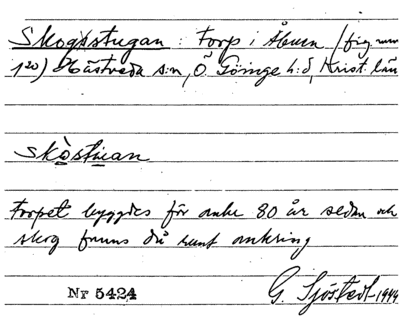 Skogsstugan : Torp i Åbuen / fig. num
120) Hästveda s:n, Ö. Göinge h:d, Krist. län
Skòstuan
Torpet byggdes för cirka 80 år sedan och
skog fanns då runt omkring
Nr 5424 G. Sjöstedt 1944